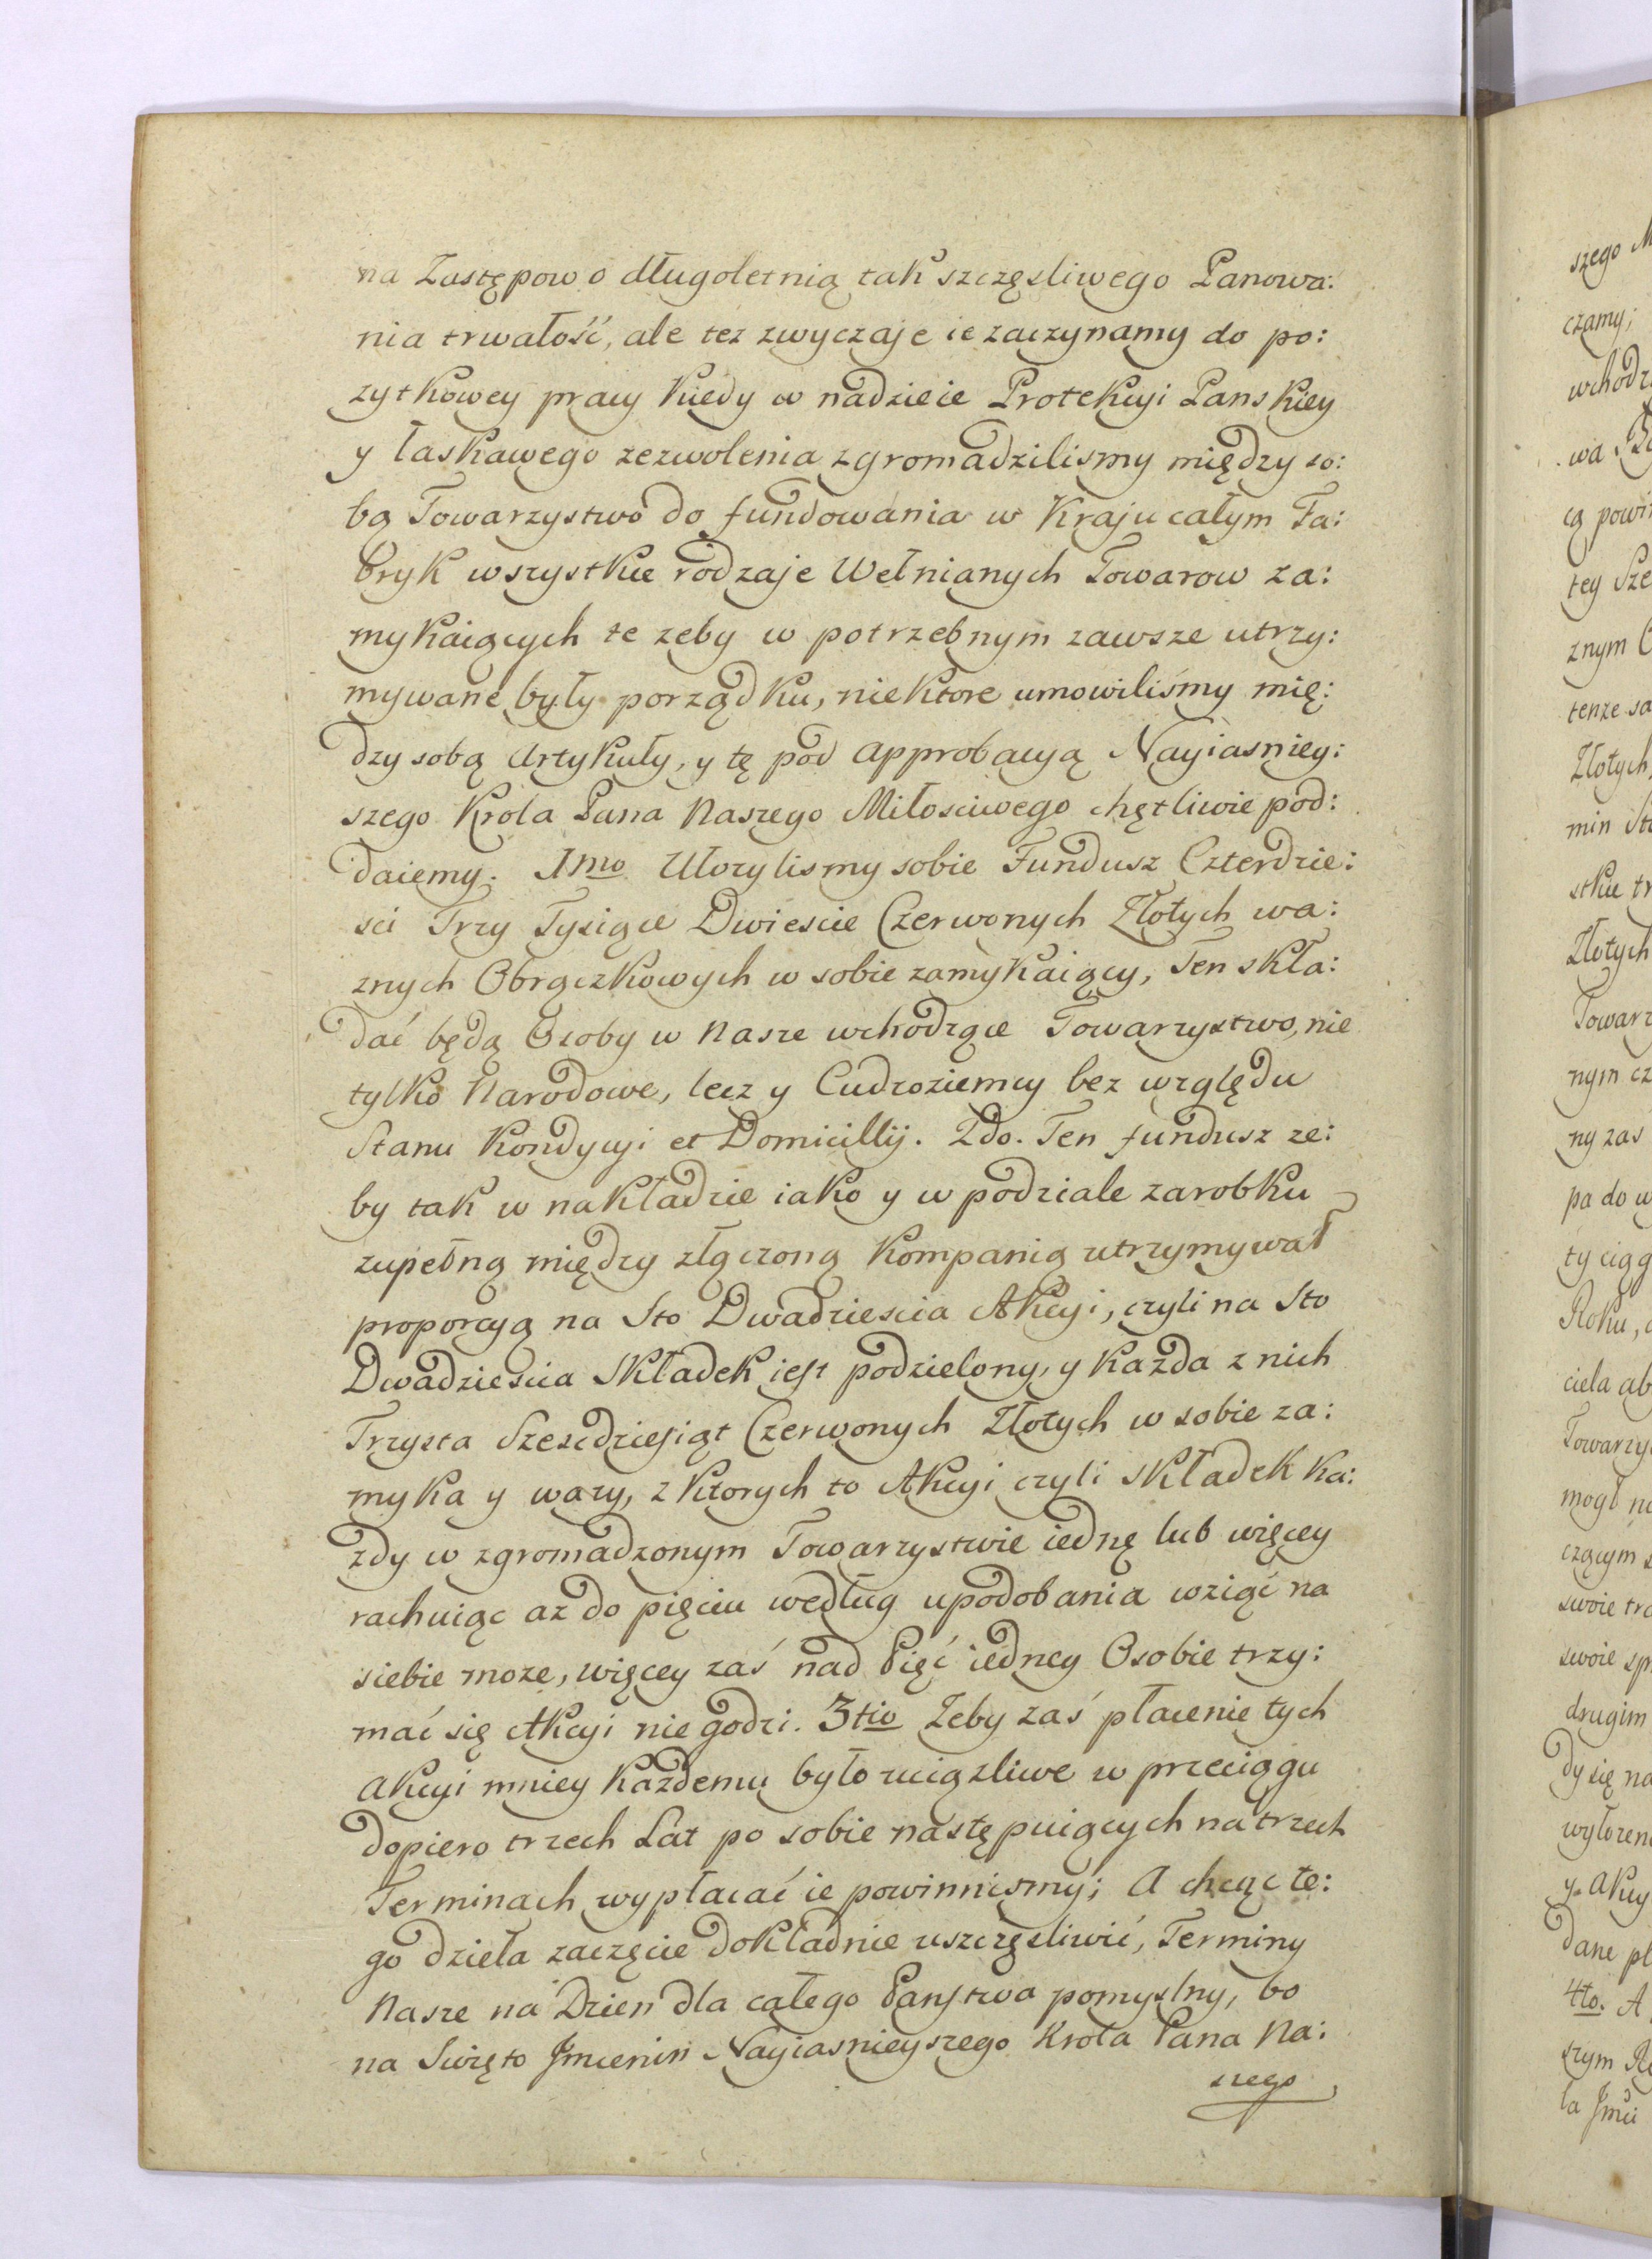 na Zastępow o długoletnią tak szczęsliwego Panowa:
nia trwałość, ale tez zwyczaje ie zaczynamy do po:
zytkowey pracy kiedy w nadzieie Protekcyi Panskiey
y łaskawego zezwolenia zgromadzilismy między so:
bą Towarzystwo do fundowania w Kraju całym Fa:
bryk wszystkie rodzaje Wełnianych Towarow za:
mykaiących te zeby w potrzebnym zawsze utrzy:
mywane były porządku, niektore umowiliśmy mię:
dzy sobą Artykuły, y tę pod approbacyą Nayiasniey:
szego Krola Pana Naszego Miłosciwego chętliwie pod:
daiemy. 1mo Ułozylismy sobie Fundusz Czterdzie:
sci Trzy Tysiące Dwiescie Czerwonych Złotych wa:
znych Obrączkowych w sobie zamykaiący, Ten skła:
dać będą Osoby w Nasze wchodzące Towarzystwo, nie
tylko Narodowe, lecz y Cudzoziemcy bez względu
Stanu Kondycyi et Domicillij. 2do. Ten fundusz ze:
by tak w nakładzie iako y w podziale zarobku
zupełną między złączoną Kompanią utrzymywał
proporcyą na Sto Dwadziescia Akcyi, czyli na Sto
Dwadziescia Składek iest podzielony, y kazda z nich
Trzysta Szescdziesiąt Czerwonych Złotych w sobie za:
myka y wazy, z ktorych to Akcyi czyli składek ka:
zdy w zgromadzonym Towarzystwie iednę lub więcey
rachuiąc az do pięciu według upodobania wziąć na
siebie moze, więcey zaś nad Pięć iedney Osobie trzy:
mać się Akcyi nie godzi. 3tio Zeby zaś płacenie tych
Akcyi mniey kazdemu było uciązliwe w przeciągu
dopiero trzech Lat po sobie następuiących na trzech
Terminach wypłacać ie powinnismy; A chcąc te:
go dzieła zaczęcie dokładnie uszczęsliwić, Terminy
Nasze na Dzien dla całego Panstwa pomyslny, bo
na Swięto Jmienin Nayiasnieyszego Krola Pana Na:
szego
szego
czamy;
wchodz
wa
cą powin
tey Sze
znym
tenze sa
Złotych,
min
stkie tr
Złotych
Towarz
nym cz
ny zas
pa do w
ty ciąg
Roku,
ciela ab
Towarzy
mogł na
czącym
swoie
swoie
drugim
dy się na
wyłozen
y Akcy
dane pł
4to. A
szym
la Jmci